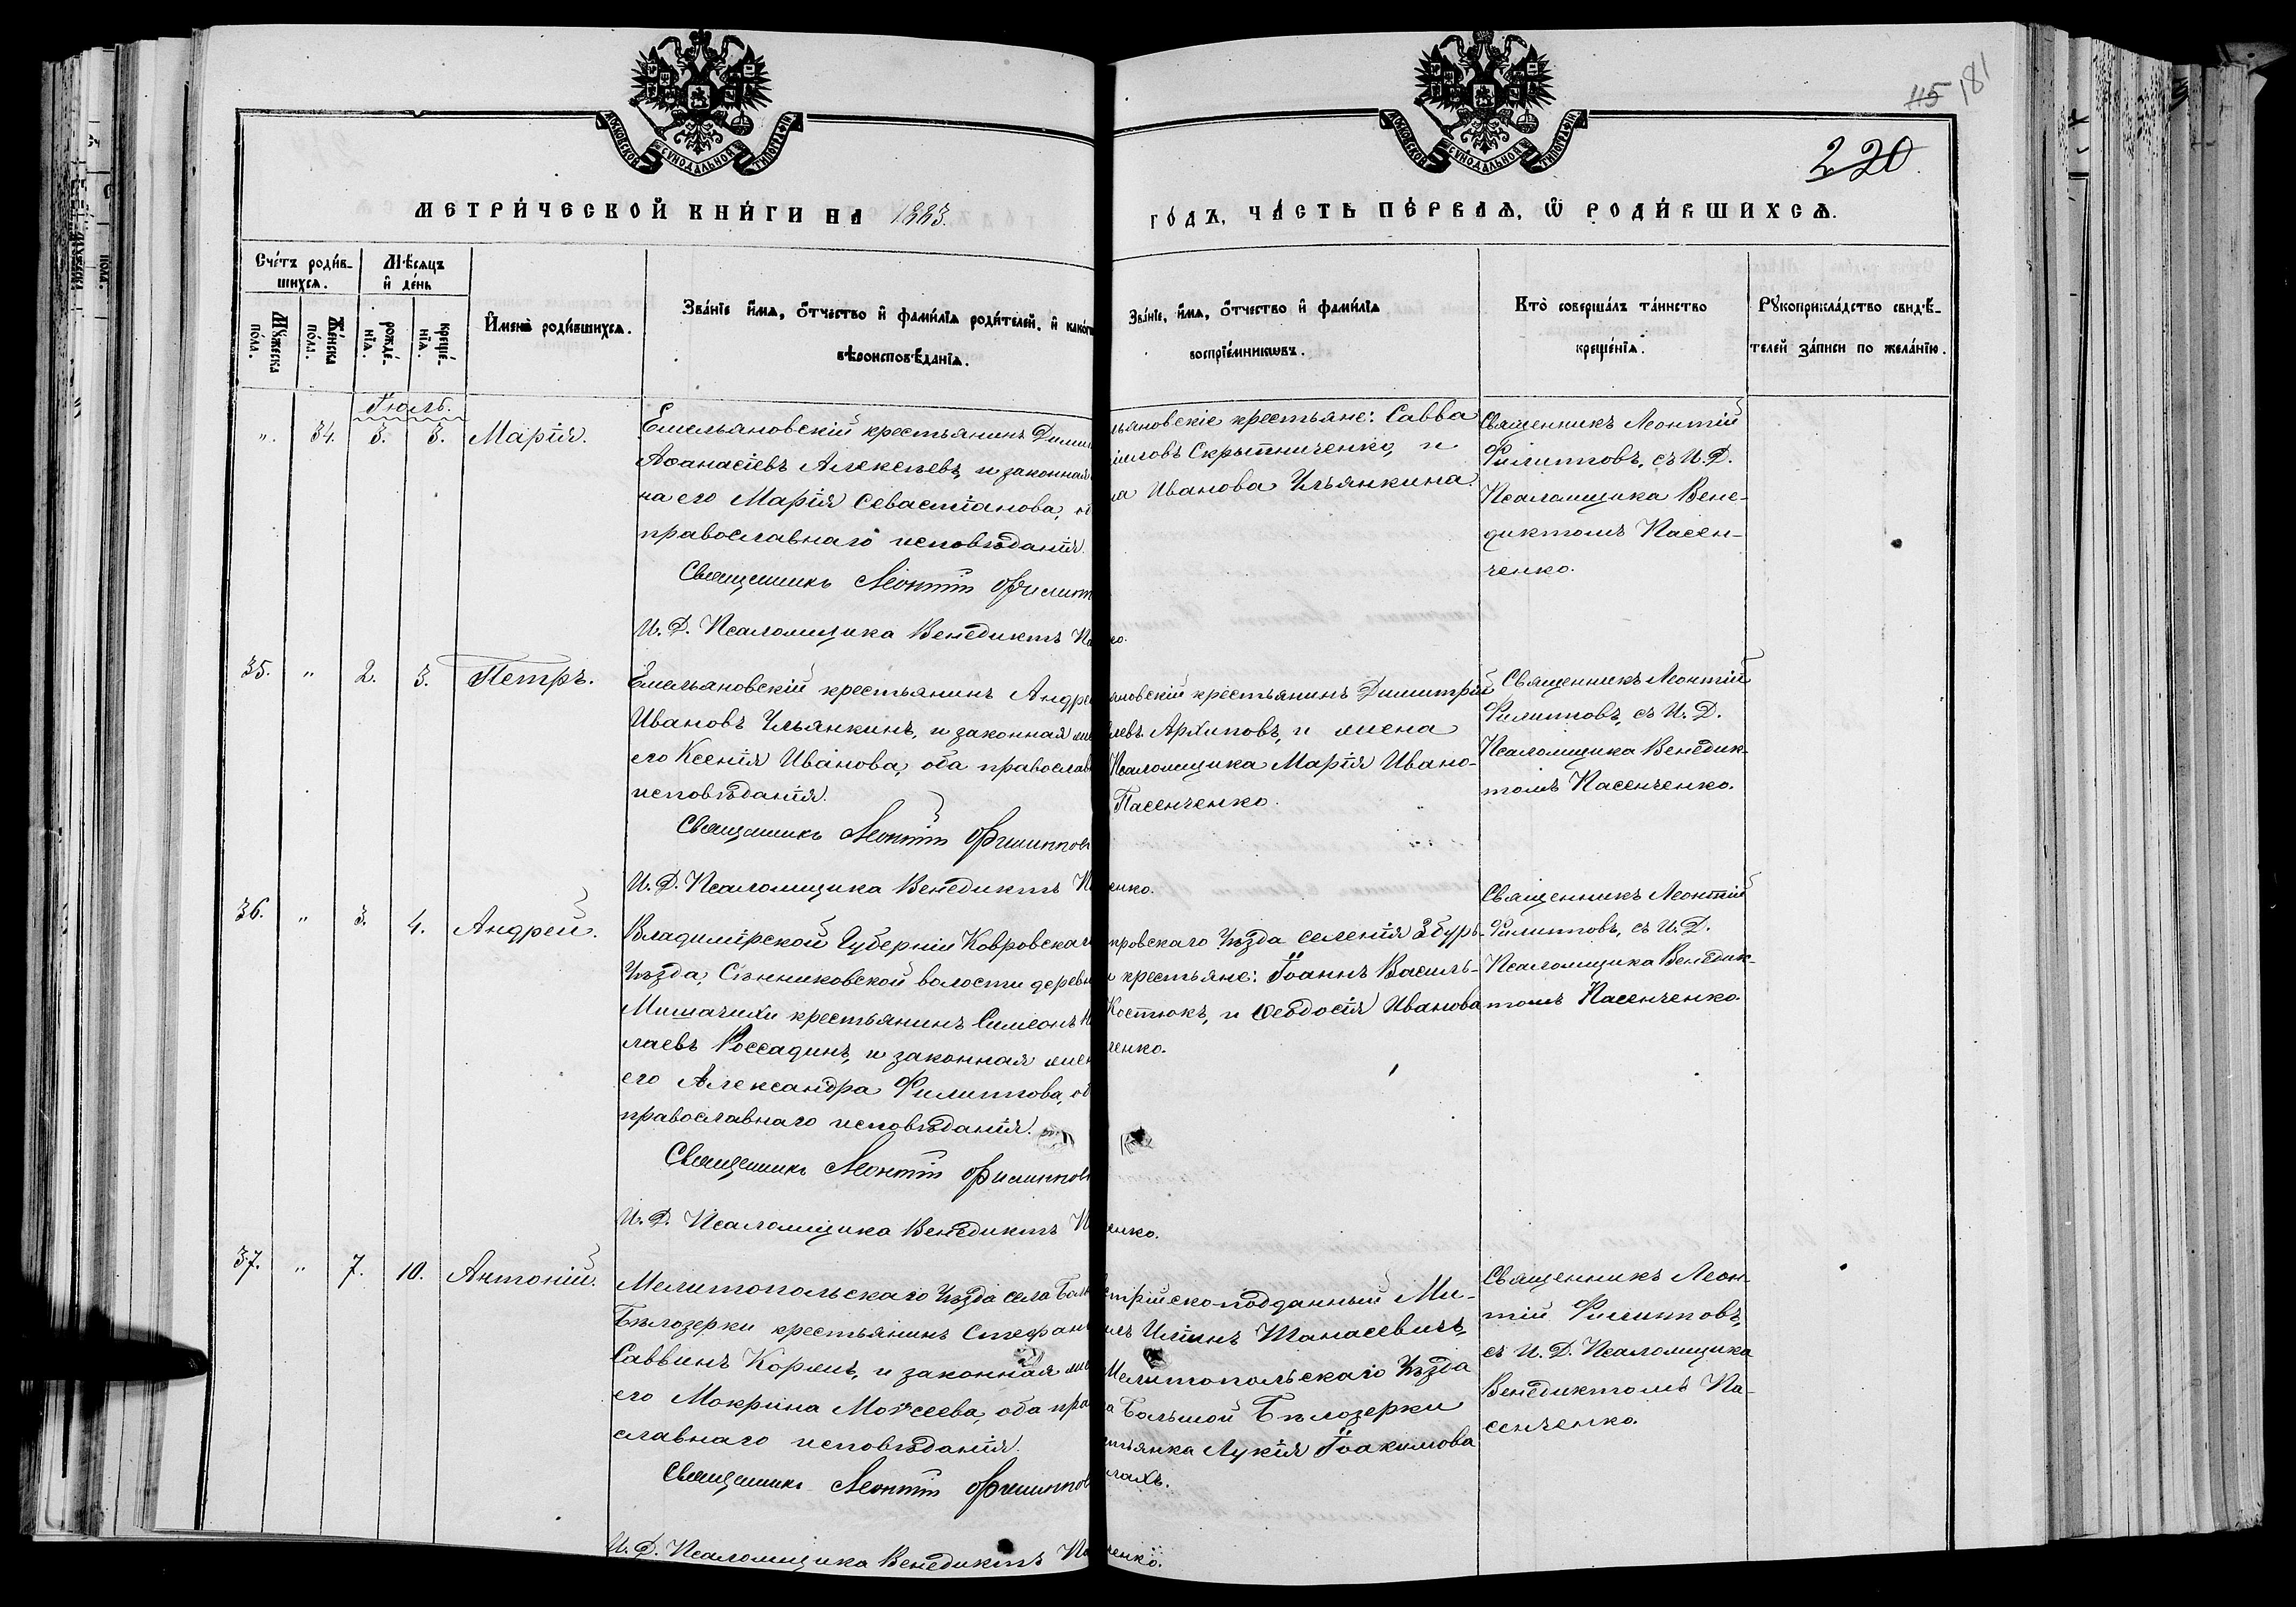 МОСКОВСКОЙ СѴНОДАЛЬНОЙ ТИПОГРАФІИ
МОСКОВСКОЙ СѴНОДАЛЬНОЙ ТИПОГРАФІИ
115 181
220
МЕТРИ́ЧЕСКОЙ КНИ́ГИ НА 1883.
ГО́ДЪ, ЧА́СТЬ ПЕ́РВАѦ, Ѿ РОДИ́ВШИХСѦ.
Сче́тъ роди́в-
шихсѧ.
Мꙋжеска
по́ла.
Же́нска
по́ла.
Мѣ́сѧцъ
и де́нь
рожде́-
нїѧ.
креще́-
нїѧ.
Имена̀ роди́вшихсѧ.
Зва́нїе и́мѧ, о́тчество и фами́лїѧ роди́телей, и како́гѡ
вѣроисповѣ́данїѧ.
Зва́нїе, и́мѧ, о́тчество и фами́лїѧ
воспрїе́мникѡвъ.
Кто̀ соверша́лъ та́инство
креще́нїѧ.
Рꙋкоприкла́дство свидѣ́-
телей за́писи по жела́нїю.
Іюль.
„. 34. 3. 3. Марія.
Емельяновскій крестьянинъ Дими
Аѳанасіевъ Алексѣевъ, и законная
на его Марія Севастіанова, о
православнаго исповѣданія.
Священникъ Леонтій Филипп
И. Д. Псаломщика Венедиктъ Па
льяновскіе крестьяне: Савва
иловъ Скрыпниченко, и
на Иванова Ульянкина.
ко.
Священникъ Леонтій
Филипповъ, съ И. Д.
Псаломщика Вене-
диктомъ Пасен-
ченко.
35. „ 2. 3. Петръ.
Емельяновскій крестьянинъ Андре
Ивановъ Ульянкинъ, и законная же
его Ксенія Иванова, оба православ
исповѣданія.
Священникъ Леонтій Филиппов
И. Д. Псаломщика Венедиктъ П
яновскій крестьянинъ Димитрій
левъ Архиповъ, и жена
Псаломщика Марія Ивано-
Пасенченко.
енко.
Священникъ Леонтій
Филипповъ, съ И. Д.
Псаломщика Венедик-
томъ Пасенченко.
36. „ 3. 4. Андрей.
Владимірской Губерніи Ковровскаг
Уѣзда, Сѣнниковской волости деревн
Мишачихи крестьянинъ Симеонъ Н
лаевъ Россадинъ, и законная жен
его Александра Филиппова, об
православнаго исповѣданія.
Священникъ Леонтій Филиппов
И. Д. Псаломщика Венедиктъ П
провскаго Уѣзда селенія Збурь-
и крестьяне: Іоаннъ Василь-
Костюкъ, и Ѳеодосія Иванова
ченко.
енко.
Священникъ Леонтій
Филипповъ, съ И. Д.
Псаломщика Венедик-
томъ Пасенченко.
37. „ 7. 10. Антоній.
Мелитопольскаго Уѣзда села Боль
Бѣлозерки крестьянинъ Стефанъ
Саввинъ Коржъ, и законная же
его Мокрина Моѵсеева, оба пра
славнаго исповѣданія.
Священникъ Леонтій Филиппов
И. Д. Псаломщика Венедиктъ Па
стрійскоподданный Ми-
илъ Иліинъ Танасевичъ,
Мелитопольскаго Уѣзда
ла Большой Бѣлозерки
стьянка Лукія Іоакимова
лахъ.
ченко.
Священникъ Леон-
тій Филипповъ,
съ И. Д. Псаломщика
Венедиктомъ Па-
сенченко.